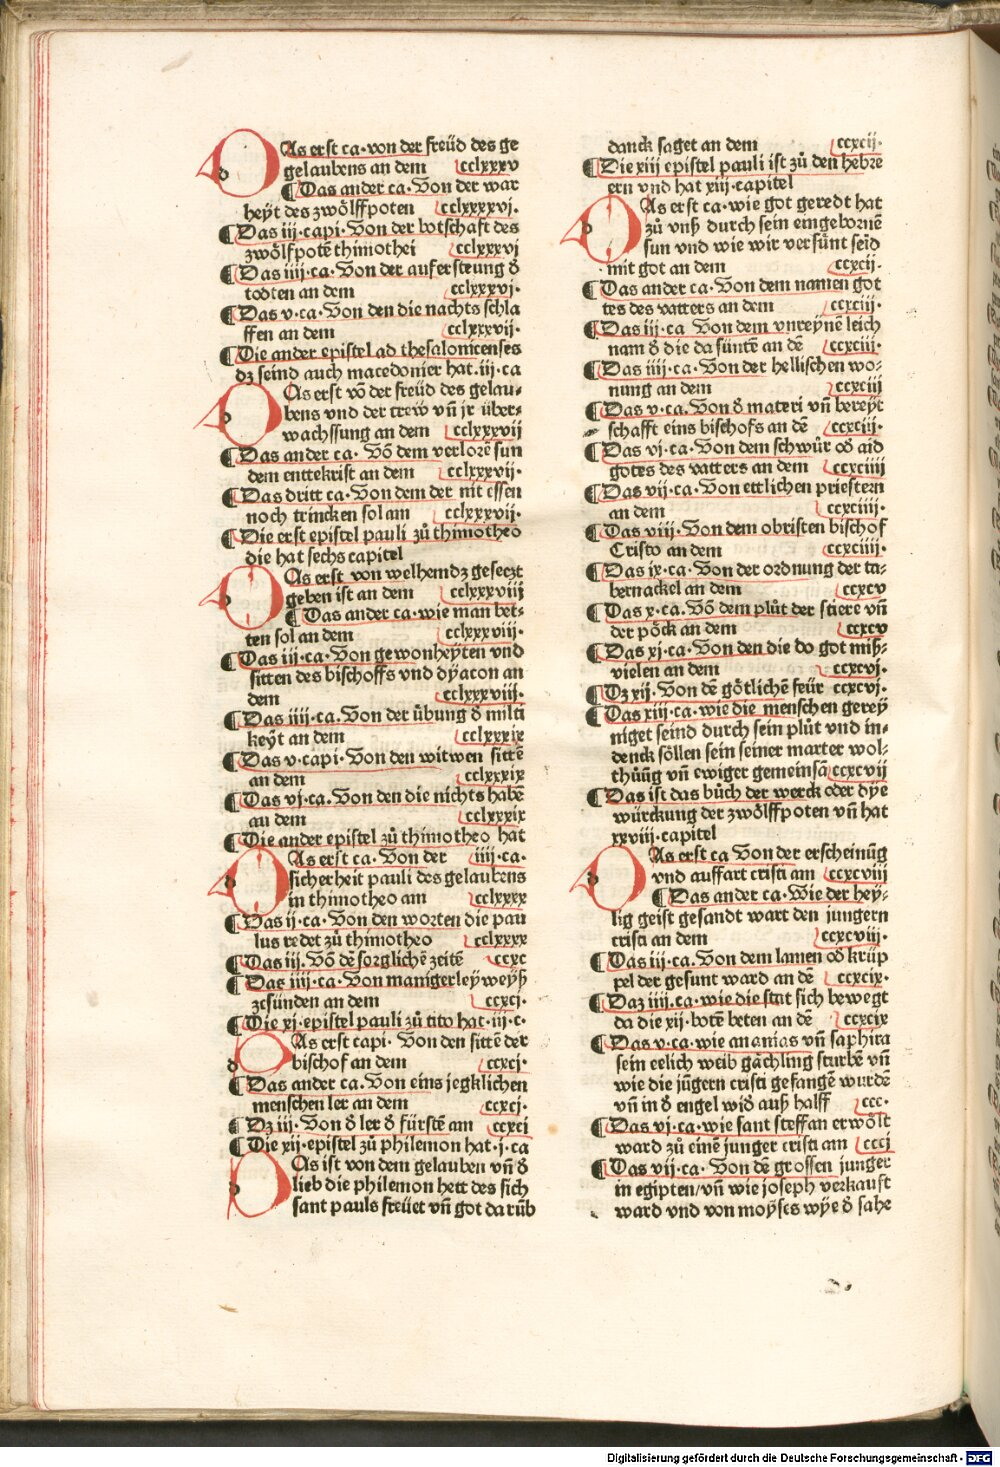 DAs erst ca·von der freüd des ge
gelaubens an dem cclxxxv
¶Das ander ca·Von der war
heÿt des zwoͤlffpoten cclxxxxvj·
¶Das iij·capi·Von der botschaft des
zwoͤlfpotē thimothei cclxxxvj
¶Das iiij·ca·Von der aufersteung ð
todten an dem cclxxxvj·
¶Das v·ca·Von den die nachts schla
ffen an dem cclxxxvij·
¶Die ander epistel ad thesalonicenses
dz seind auch macedonier hat·iij·ca
DAs erst vō der freüd des gelau-
bens vnd der trew vn̄ jr über-
wachssung an dem cclxxxvij
¶Das ander ca· Vō dem verlorē sun
dem enttekrist an dem cclxxxvij·
¶Das dritt ca·Von dem der nit essen
noch trincken sol am cclxxxvij·
¶Die erst epistel pauli zuͦ thimotheo
die hat sechs capitel
DAs erst von welhem dz gesetzt
geben ist an dem cclxxxviij
¶Das ander ca·wie man bet-
ten sol an dem cclxxxviij·
¶Das iij·ca·Von gewonheÿten vnd
sitten des bischoffs vnd dÿacon an
dem cclxxxviij·
¶Das iiij·ca·Von der übung ð milti
keÿt an dem cclxxxix
¶Das v·capi·Von den witwen sittē
an dem cclxxxix
¶Das vj·ca·Von den die nichts habē
an dem cclxxxix
¶Die ander epistel zuͦ thimotheo hat
DAs erst ca·Von der iiij·ca·
sicherheit pauli des gelaubens
in thimotheo am cclxxxx
¶Das ij·ca·Von den worten die pau
lus redet zuͦ thimotheo cclxxxx
¶Das iij·Vō dē sorglichē zeitē ccxc
¶Das iiij·ca·Von manigerleÿ weÿß
ze sünden an dem ccxcj·
¶Die xj·epistel pauli zuͦ tito hat·iij·c·
DAs erst capi· Von den sittē der
bischof an dem ccxcj·
¶Das ander ca·Von eins jegklichen
menschen ler an dem ccxcj·
¶Dz iij·Von ð ler ð fürstē am ccxcj
¶Die xij·epistel zuͦ philemon hat·j·ca
DAs ist von dem gelauben vn̄ ð
lieb die philemon hett des sich
sant pauls freüet vn̄ got darūb
danck saget an dem ccxcij·
¶Die xiij epistel pauli ist zuͦ den hebre
ern vnd hat xiij·capitel
DAs erst ca·wie got geredt hat
zuͦ vnß durch sein eingebornē
sun vnd wie wir versünt seid
mit got an dem ccxcij·
¶Das ander ca·Von dem namen got
tes des vatters an dem ccxciij·
¶Das iij·ca Von dem vnreÿnē leich
nam ð die da süntē an dē ccxciij·
¶Das iiij·ca·Von der hellischen wo-
nung an dem ccxciij
¶Das v·ca·Von ð materi vn̄ bereÿt
schafft eins bischofs an dē ccxciij·
¶Das vj·ca·Von dem schwuͦr oð aid
gotes des vatters an dem ccxciiij
¶Das vij·ca·Von ettlichen priestern
an dem ccxciiij·
¶Das viij·Von dem obristen bischof
Cristo an dem ccxciiij·
¶Das ix·ca·Von der ordnung der ta-
bernackel an dem ccxcv
¶Das x·ca·Vō dem pluͦt der stiere vn̄
der poͤck an dem ccxcv
¶Das xj·ca·Von den die do got miß-
vielen an dem ccxcvj·
¶Dz xij·Von dē goͤtlichē feür ccxcvj·
¶Das xiij·ca·wie die menschen gereÿ
niget seind durch sein pluͦt vnd in-
denck soͤllen sein seiner marter wol-
thuͦng vn̄ ewiger gemeinsā ccxcvij
¶Das ist das buͦch der werck oder dÿe
würckung der zwoͤlffpoten vn̄ hat
xxviij·capitel
DAs erst ca Von der erscheinūg
vnd auffart cristi am ccxcviij
¶Das ander ca·Wie der heÿ-
lig geist gesandt wart den jungern
cristi an dem ccxcviij·
¶Das iij·ca·Von dem lamen oð krüp
pel der gesunt ward an dē ccxcix·
¶Daz iiij·ca·wie die stat sich bewegt
da die xij·botē beten an dē ccxcix
¶Das v·ca·wie ananias vn̄ saphira
sein eelich weib gaͤchling sturbē vn̄
wie die jūgern cristi gefangē wurdē
vn̄ in ð engel wið auß halff ccc·
¶Das vj·ca·wie sant steffan erwoͤlt
ward zuͦ einē junger cristi am cccj
¶Das vij·ca·Von dē grossen junger
in egipten/vn̄ wie joseph verkauft
ward vnd von moÿses wÿe ð sahe
Digitalisierung gefördert durch die Deutsche Forschungsgemeinschaft · DFG